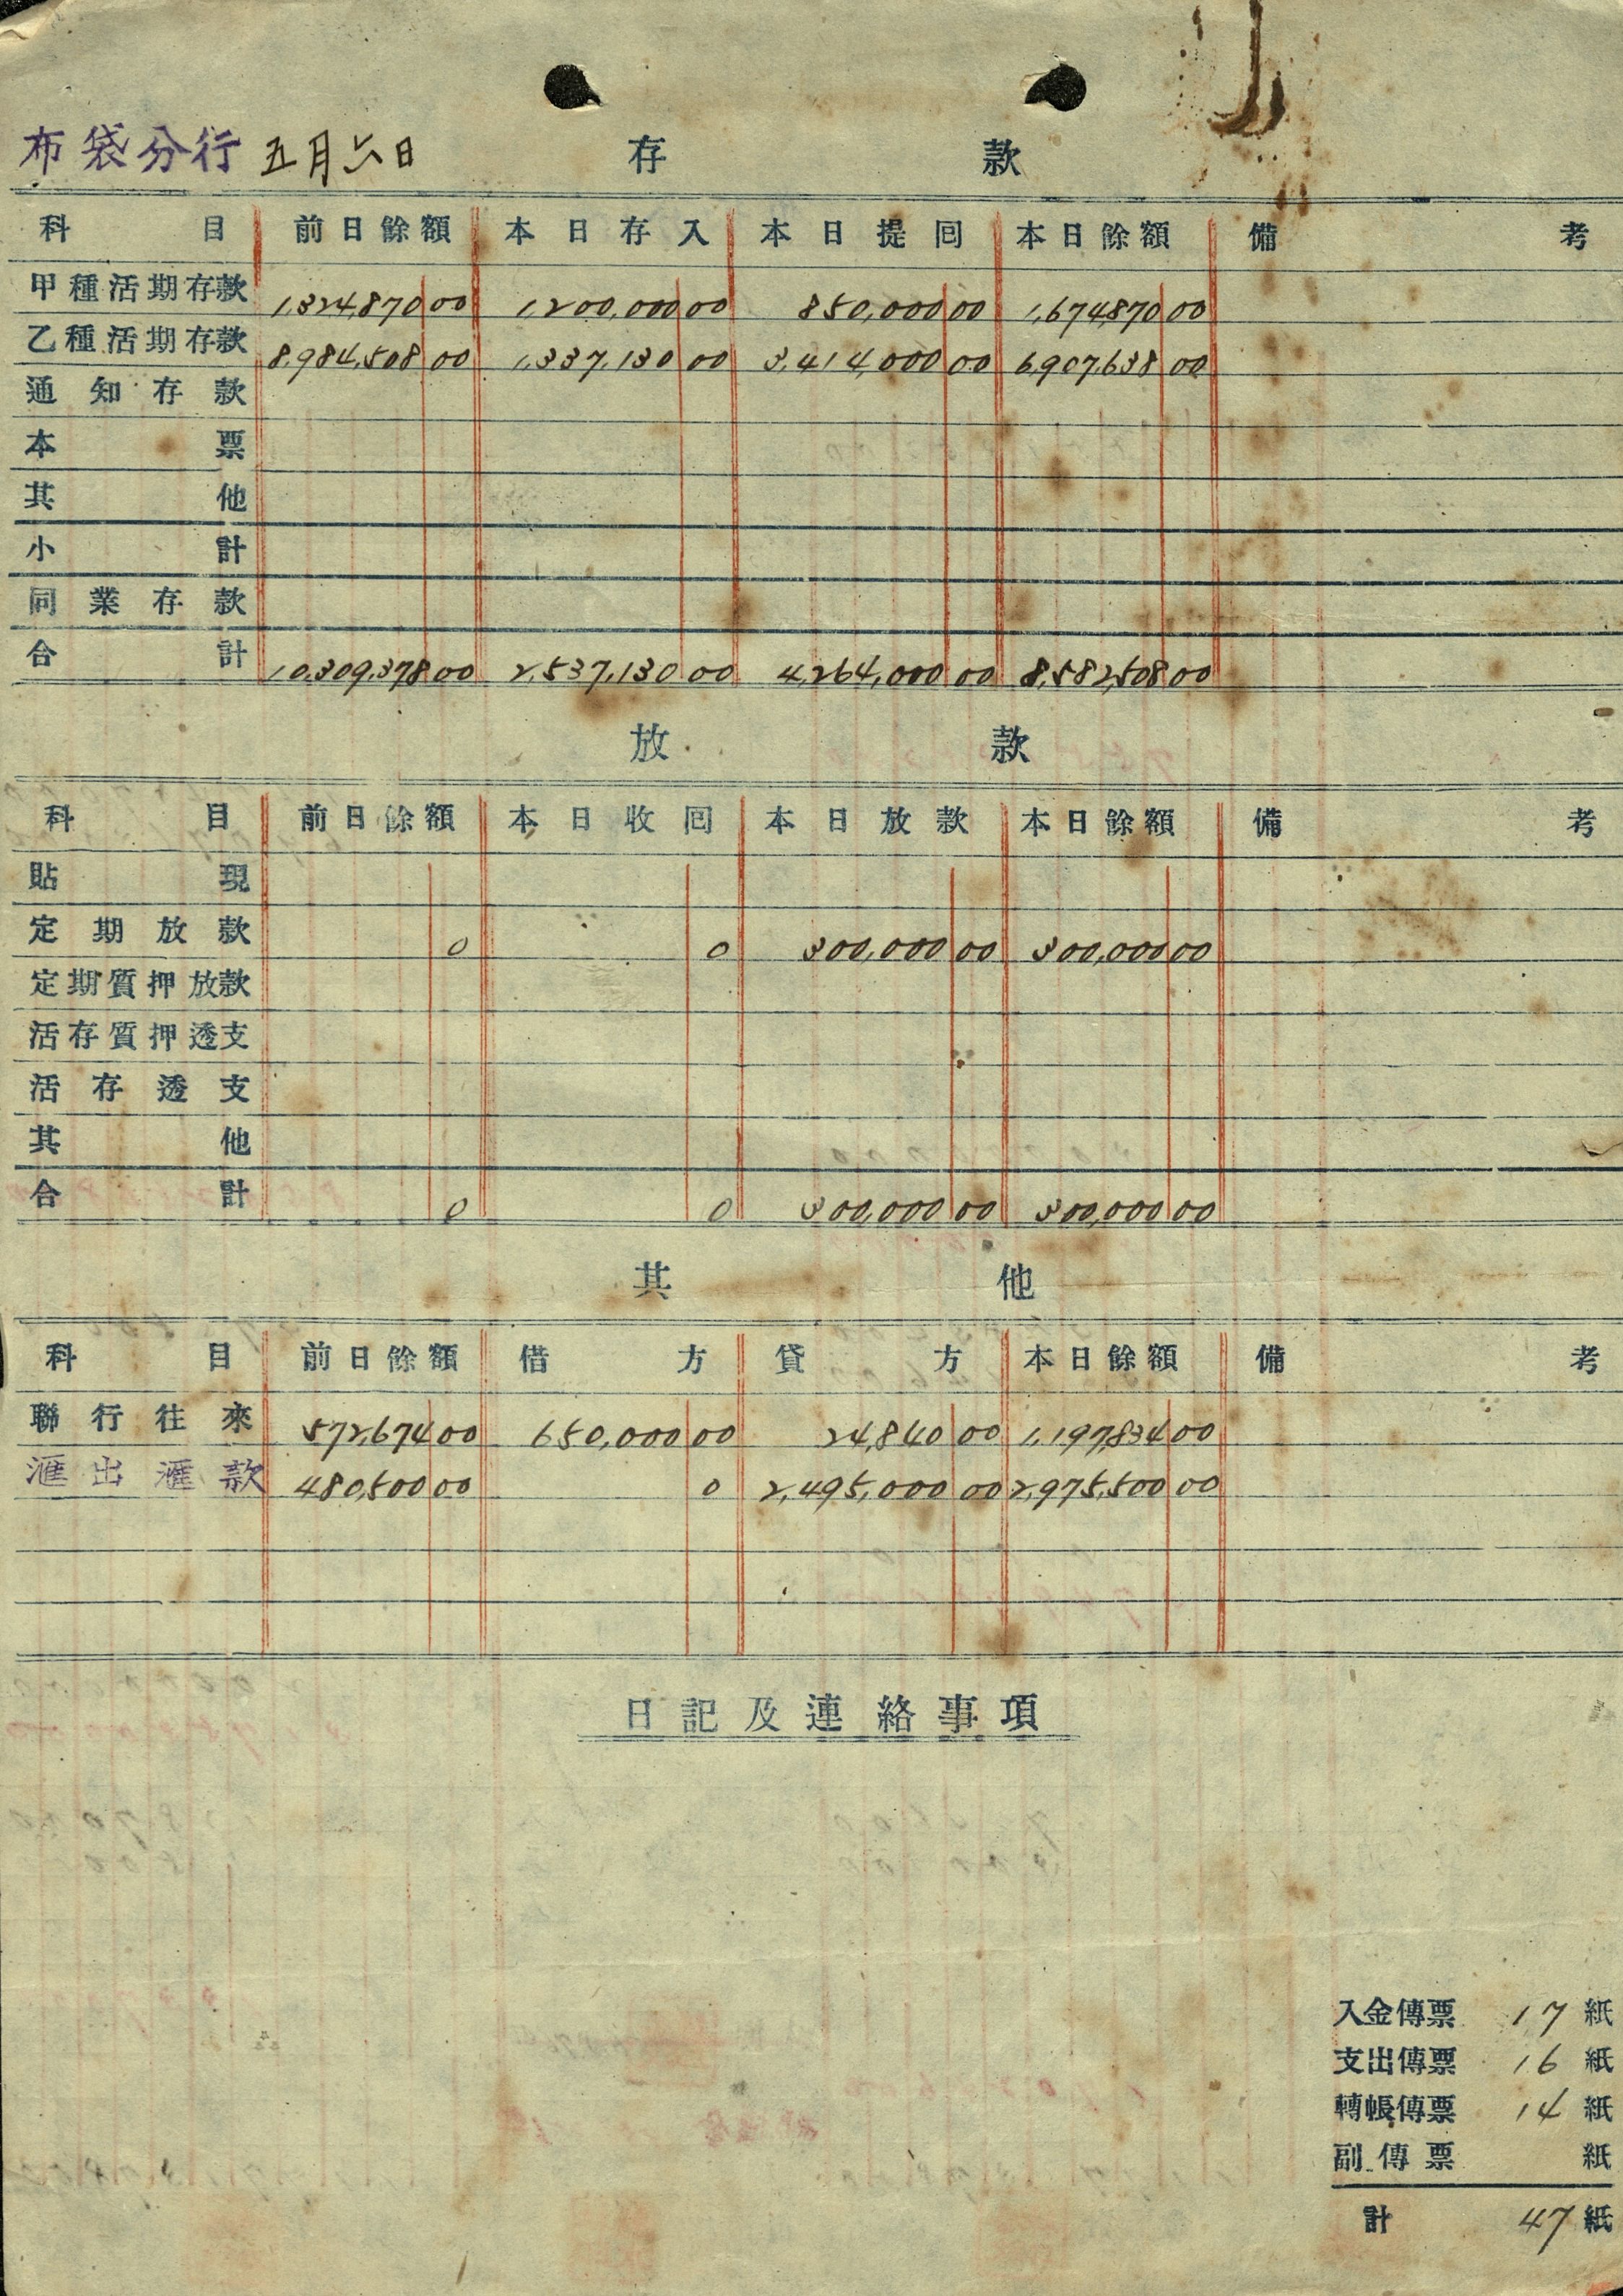 布袋分行 五月六日
存款
科目 前日餘額 本日存入 本日提回 本日餘額 備考
甲種活期存款 1,324,870 00 1,200,000 00 850,000 00 1,674,870 00
乙種活期存款 8,984,508 00 1,337,130 00 3,414,000 00 6,907,638 00
通知存款
本票
其他
小計
同業存款
合計 10,309,378 00 2,537,130 00 4,264,000 00 8,582,508 00
放款
科目 前日餘額 本日收回 本日放款 本日餘額 備考
貼現
定期放款 0 0 300,000 00 300,000 00
定期質押放款
活存質押透支
活存透支
其他
合計 0 0 300,000 00 300,000 00
其他
科目 前日餘額 借方 貸方 本日餘額 備考
聯行往來 572,674 00 650,000 00 24,840 00 1,197,834 00
滙出滙款 480,500 00 0 2,495,000 00 2,975,500 00
日記及連絡事項
入金傳票 17 紙
支出傳票 16 紙
轉帳傳票 14 紙
副傳票 紙
計 47 紙